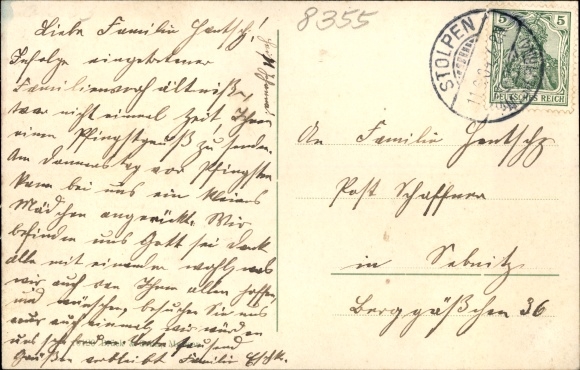 8355
Liebe Familie Hentsch!
Infolge eingetretener
Familienverhältniße
war nicht einmal Zeit Ihnen
einen Pfingstgruß zu senden.
Am Donnerstag vor Pfingsten
kam bei uns ein kleines
Mädchen angerückt. Wir
befinden uns Gott sei Dank
alle mit einander wohl, was
wir auch von Ihnen allen hoffen
und wünschen, besuchen Sie uns
nur auch einmal, wir würden
uns sehr freuen. Unter tausend
Grüßen verbleibt Familie
STOLPEN
5 5
DEUTSCHES REICH
An Familie Hentsch
Post Schaffner
in Sebnitz
Berggäßchen 36